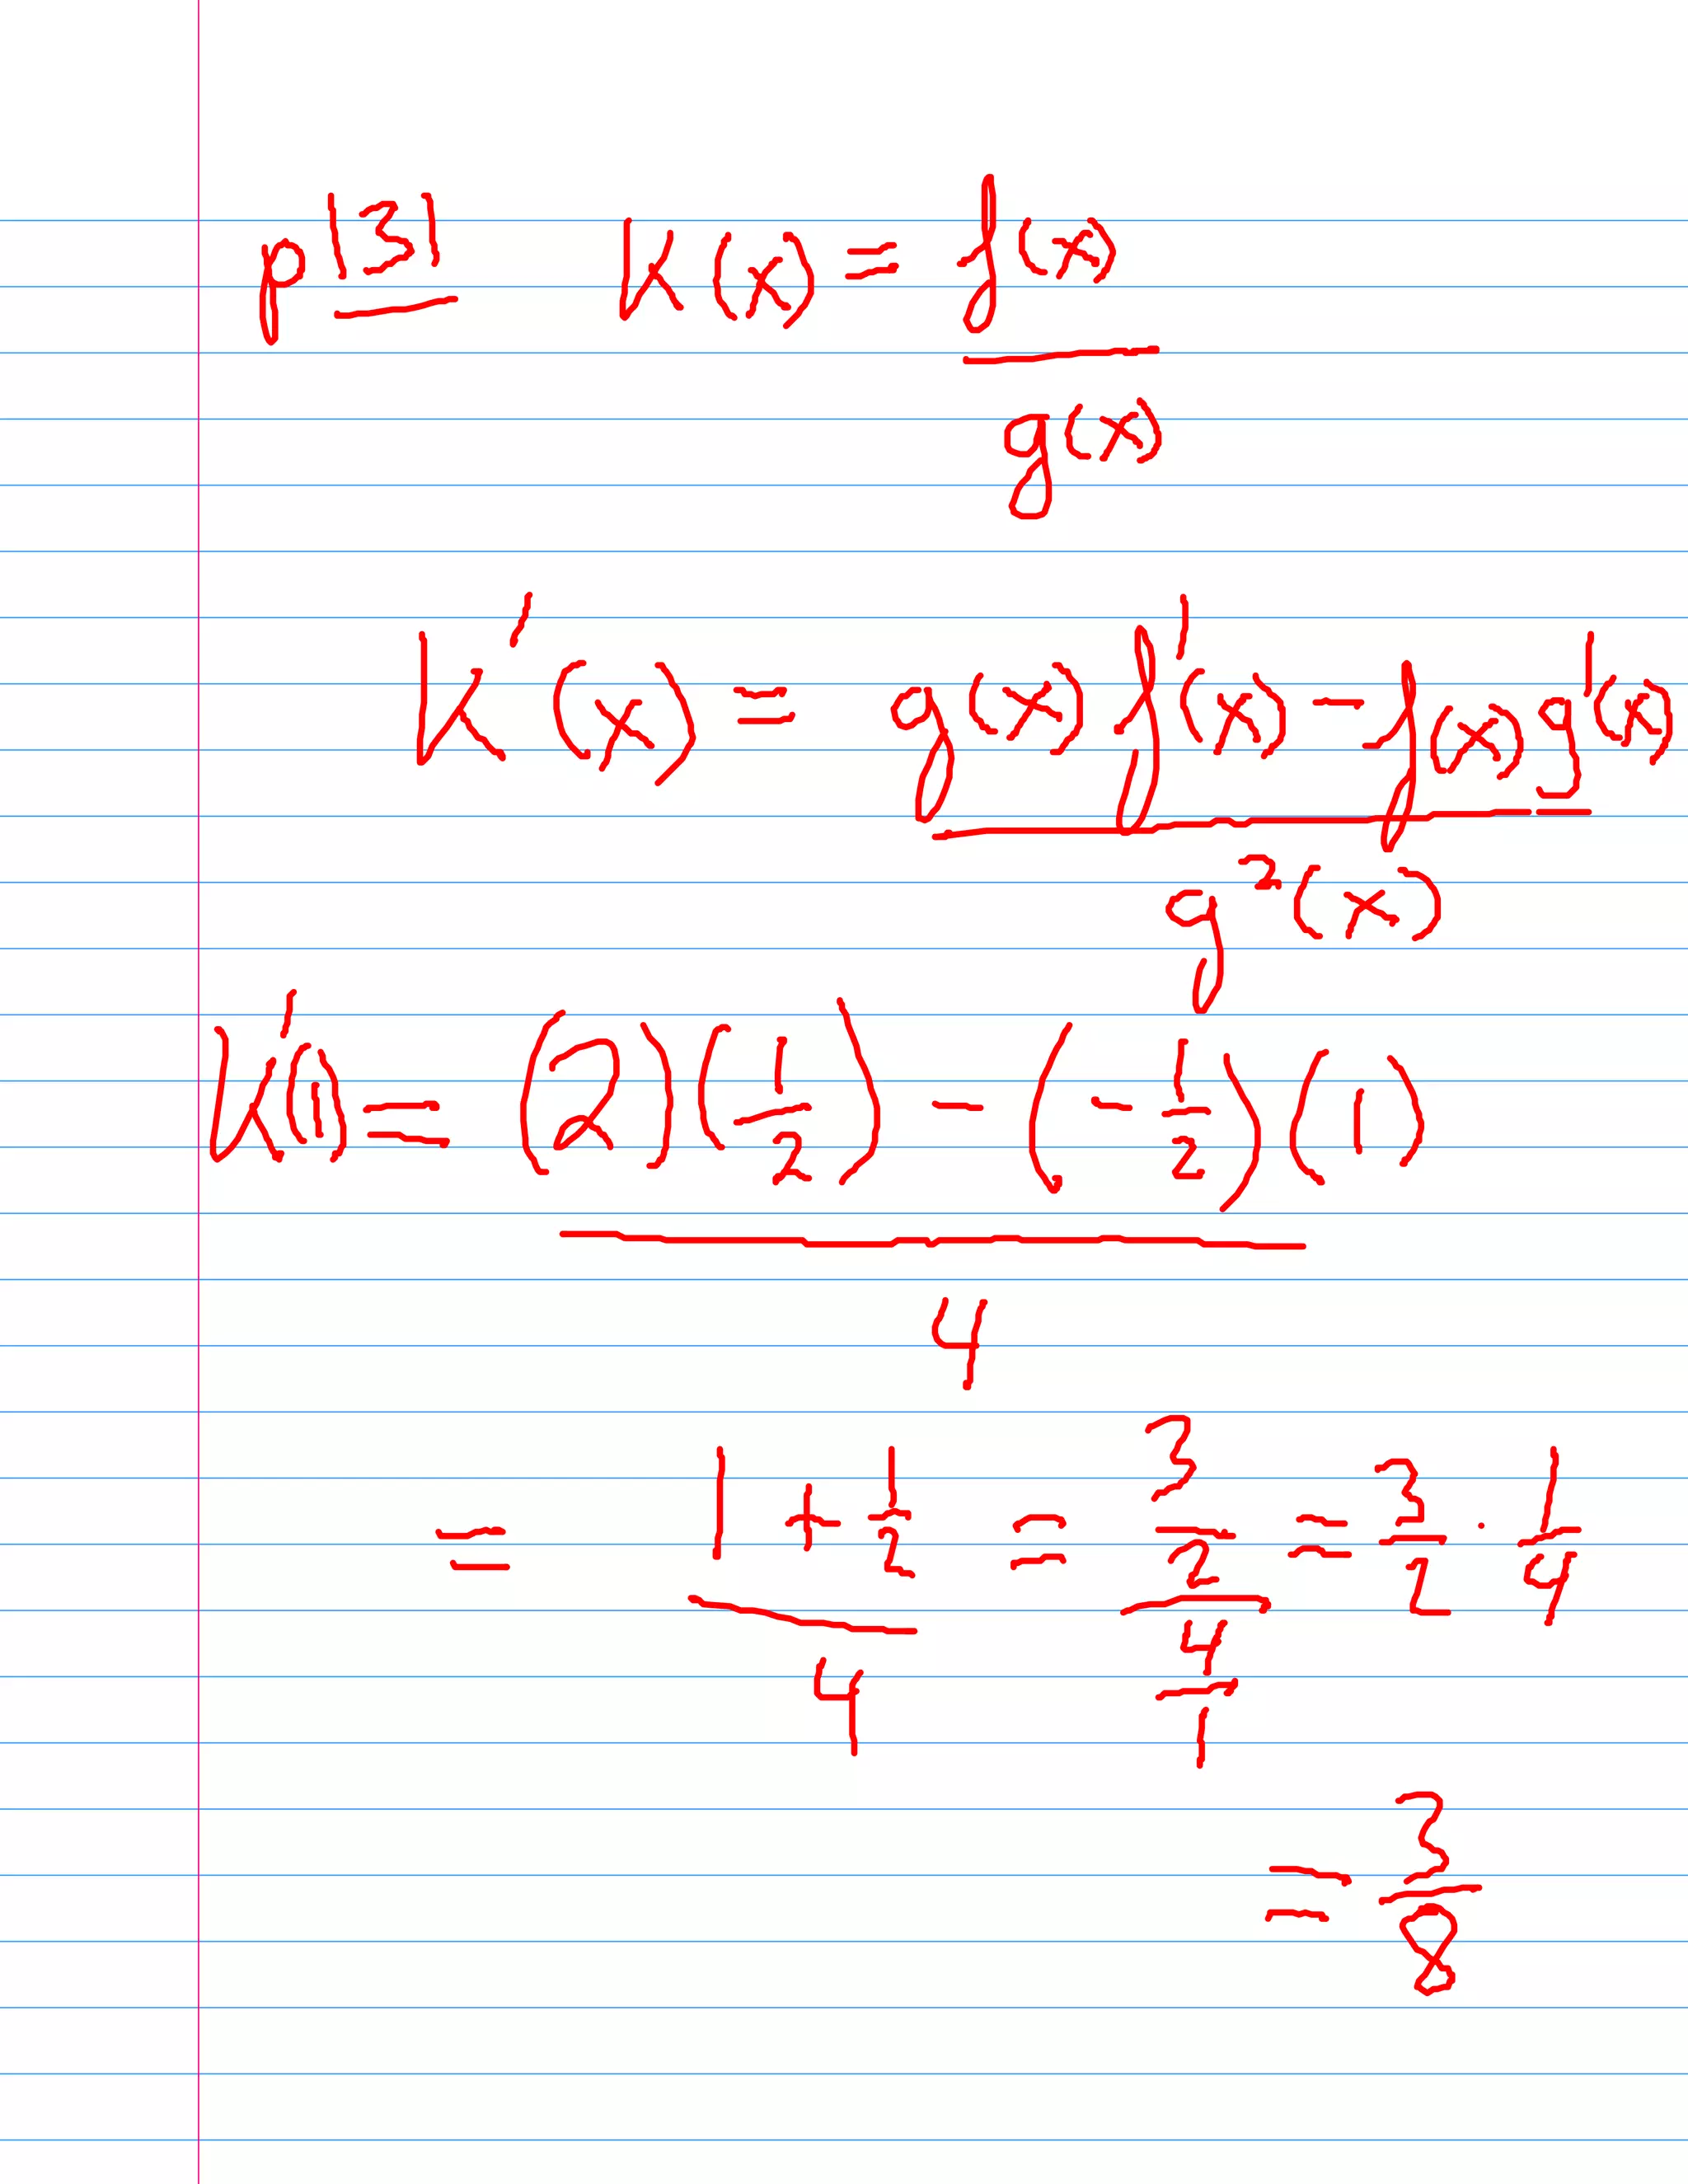 p 131 K(x) = f(x) / g(x)
K'(x) = g(x) f'(x) - f(x) g'(x) / g²(x)
K'(1) = (2)(1/2) - (-1/2)(1) / 4
= 1 + 1/2 / 4 = 3/2 / 4/1 = 3/2 · 1/4
= 3/8